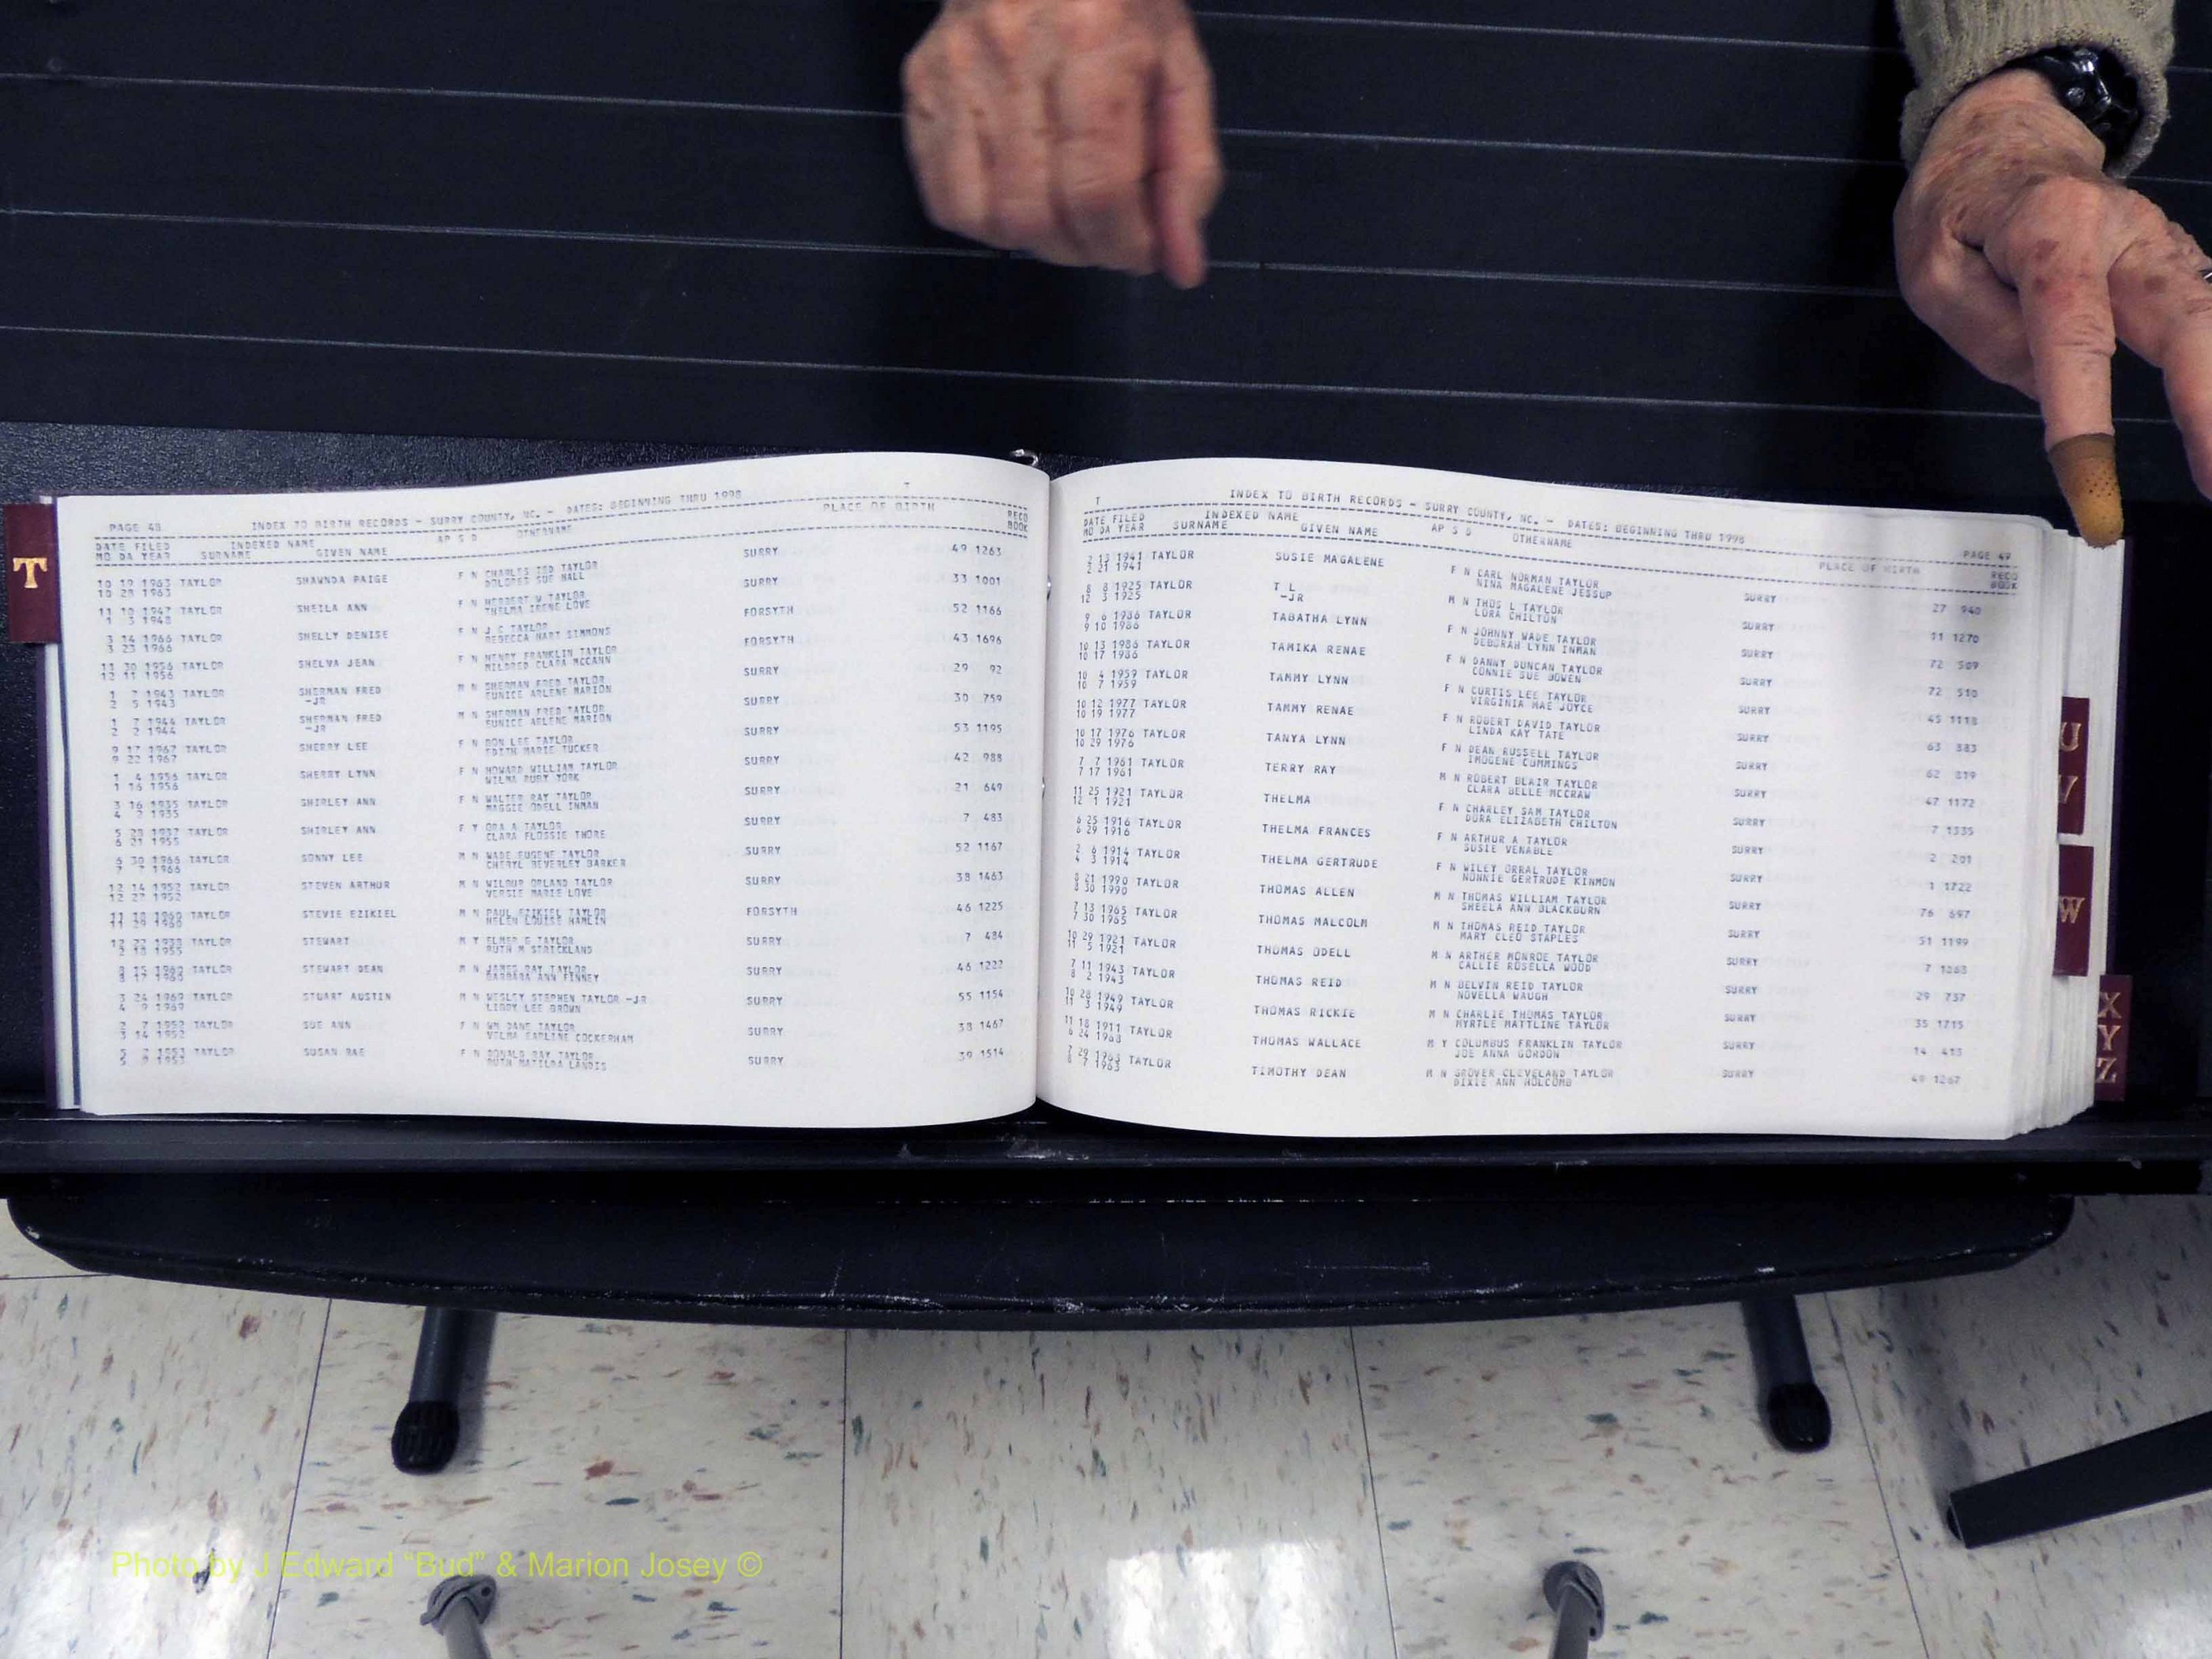 T
PAGE 48 INDEX TO BIRTH RECORDS - SURRY COUNTY, NC. - DATES: BEGINNING THRU 1998 T
DATE FILED INDEXED NAME AP S D OTHERNAME PLACE OF BIRTH RECD
MO DA YEAR SURNAME GIVEN NAME BOOK
10 19 1963 TAYLOR SHAWNDA PAIGE F N CHARLES TED TAYLOR SURRY 49 1263
10 28 1963 DOLORES SUE HALL
11 10 1947 TAYLOR SHEILA ANN F N HERBERT W TAYLOR SURRY 33 1001
1 3 1948 THELMA IRENE LOVE
3 14 1966 TAYLOR SHELLY DENISE F N J C TAYLOR FORSYTH 52 1166
3 23 1966 REBECCA HART SIMMONS
11 30 1956 TAYLOR SHELVA JEAN F N HENRY FRANKLIN TAYLOR FORSYTH 43 1696
12 11 1956 MILDRED CLARA MCCANN
1 7 1943 TAYLOR SHERMAN FRED M N SHERMAN FRED TAYLOR SURRY 29 92
2 5 1943 -JR EUNICE ARLENE MARION
1 7 1944 TAYLOR SHERMAN FRED M N SHERMAN FRED TAYLOR SURRY 30 759
2 2 1944 -JR EUNICE ARLENE MARION
9 17 1967 TAYLOR SHERRY LEE F N DON LEE TAYLOR SURRY 53 1195
9 22 1967 EDITH MARIE TUCKER
1 4 1956 TAYLOR SHERRY LYNN F N HOWARD WILLIAM TAYLOR SURRY 42 988
1 16 1956 WILMA RUBY YORK
3 16 1935 TAYLOR SHIRLEY ANN F N WALTER RAY TAYLOR SURRY 21 649
4 2 1935 MAGGIE ODELL INMAN
5 28 1937 TAYLOR SHIRLEY ANN F Y ORA A TAYLOR SURRY 7 483
6 21 1955 CLARA FLOSSIE THORE
6 30 1966 TAYLOR SONNY LEE M N WADE EUGENE TAYLOR SURRY 52 1167
7 7 1966 CHERYL BEVERLEY BARKER
12 14 1952 TAYLOR STEVEN ARTHUR M N WILBUR ORLAND TAYLOR SURRY 38 1463
12 27 1952 VERSIE MARIE LOVE
11 18 1960 TAYLOR STEVIE EZIKIEL M N PAUL EZIKIEL TAYLOR FORSYTH 46 1225
11 29 1960 HELEN LOUISE HAMLIN
12 22 1938 TAYLOR STEWART M Y ELMER G TAYLOR SURRY 7 484
2 18 1955 RUTH M STRICKLAND
8 15 1960 TAYLOR STEWART DEAN M N JAMES RAY TAYLOR SURRY 46 1222
8 17 1960 BARBARA ANN FINNEY
3 24 1969 TAYLOR STUART AUSTIN M N WESLEY STEPHEN TAYLOR -JR SURRY 55 1154
4 9 1969 LIBBY LEE BROWN
2 7 1952 TAYLOR SUE ANN F N WM DANE TAYLOR SURRY 38 1467
3 14 1952 VELMA EARLINE COCKERHAM
5 2 1953 TAYLOR SUSAN RAE F N DONALD RAY TAYLOR SURRY 39 1514
5 9 1953 RUTH MATILDA LANDIS
T INDEX TO BIRTH RECORDS - SURRY COUNTY, NC. - DATES: BEGINNING THRU 1998 PAGE 49
DATE FILED INDEXED NAME AP S D OTHERNAME PLACE OF BIRTH RECD
MO DA YEAR SURNAME GIVEN NAME BOOK
2 13 1941 TAYLOR SUSIE MAGALENE F N CARL NORMAN TAYLOR SURRY 27 940
2 21 1941 NINA MAGALENE JESSUP
8 8 1925 TAYLOR T L M N THOS L TAYLOR SURRY 11 1270
12 3 1925 -JR LORA CHILTON
9 6 1986 TAYLOR TABATHA LYNN F N JOHNNY WADE TAYLOR SURRY 72 509
9 10 1986 DEBORAH LYNN INMAN
10 13 1986 TAYLOR TAMIKA RENAE F N DANNY DUNCAN TAYLOR SURRY 72 510
10 17 1986 CONNIE SUE BOWEN
10 4 1959 TAYLOR TAMMY LYNN F N CURTIS LEE TAYLOR SURRY 45 1118
10 7 1959 VIRGINIA MAE JOYCE
10 12 1977 TAYLOR TAMMY RENAE F N ROBERT DAVID TAYLOR SURRY 63 383
10 19 1977 LINDA KAY TATE
10 17 1976 TAYLOR TANYA LYNN F N DEAN RUSSELL TAYLOR SURRY 62 819
10 29 1976 IMOGENE CUMMINGS
7 7 1961 TAYLOR TERRY RAY M N ROBERT BLAIR TAYLOR SURRY 47 1172
7 17 1961 CLARA BELLE MCCRAW
11 25 1921 TAYLOR THELMA F N CHARLEY SAM TAYLOR SURRY 7 1335
12 1 1921 DORA ELIZABETH CHILTON
6 25 1916 TAYLOR THELMA FRANCES F N ARTHUR A TAYLOR SURRY 2 201
6 29 1916 SUSIE VENABLE
2 6 1914 TAYLOR THELMA GERTRUDE F N WILEY ORRAL TAYLOR SURRY 1 1722
4 3 1914 NONNIE GERTRUDE KINMON
8 21 1990 TAYLOR THOMAS ALLEN M N THOMAS WILLIAM TAYLOR SURRY 76 697
8 30 1990 SHEELA ANN BLACKBURN
7 13 1965 TAYLOR THOMAS MALCOLM M N THOMAS REID TAYLOR SURRY 51 1199
7 30 1965 MARY CLEO STAPLES
10 29 1921 TAYLOR THOMAS ODELL M N ARTHER MONROE TAYLOR SURRY 7
11 5 1921 CALLIE ROSELLA WOOD
7 11 1943 TAYLOR THOMAS REID M N BELVIN REID TAYLOR SURRY 29 737
8 2 1943 NOVELLA WAUGH
10 28 1949 TAYLOR THOMAS RICKIE M N CHARLIE THOMAS TAYLOR SURRY 35 1715
11 3 1949 MYRTLE MATTLINE TAYLOR
11 18 1911 TAYLOR THOMAS WALLACE M Y COLUMBUS FRANKLIN TAYLOR SURRY 14 413
6 24 1968 JOE ANNA GORDON
7 29 1963 TAYLOR TIMOTHY DEAN M N GROVER CLEVELAND TAYLOR SURRY 49 1267
8 7 1963 DIXIE ANN HOLCOMB
U
V
W
X
Y
Z
Photo by J Edward "Bud" & Marion Josey ©